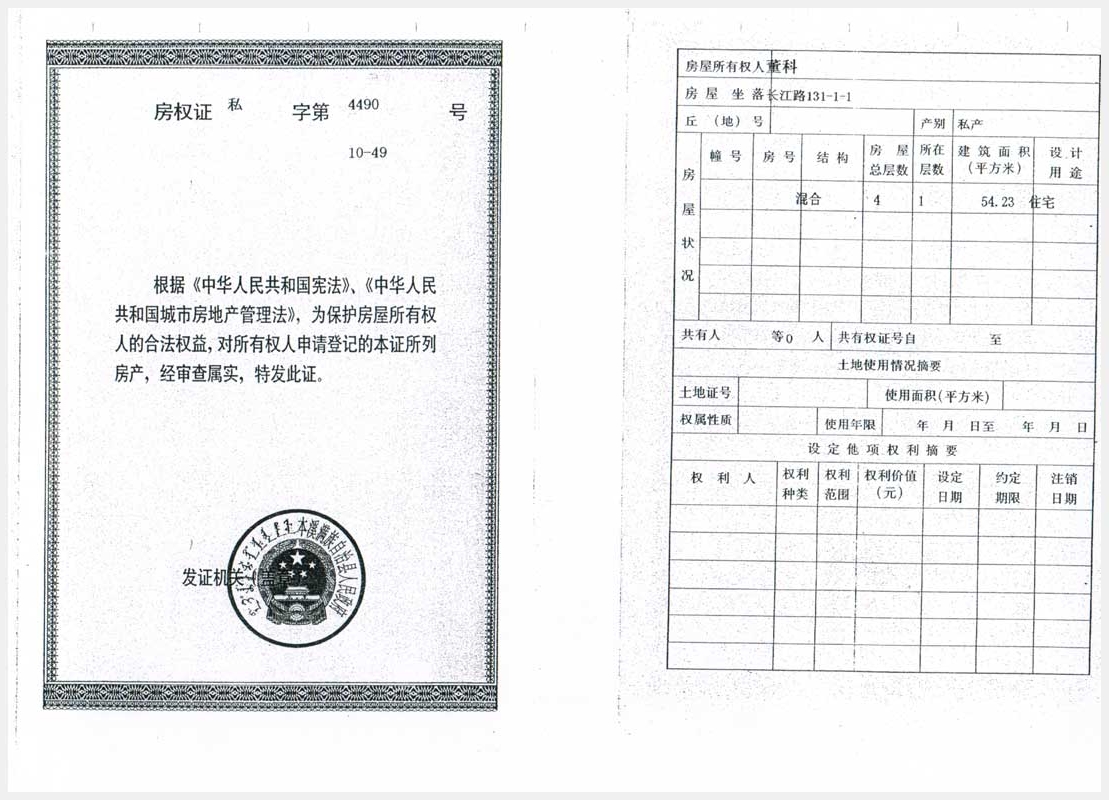 房权证 私 字第 4490 号
10-49
根据《中华人民共和国宪法》、《中华人民
共和国城市房地产管理法》，为保护房屋所有权
人的合法权益,对所有权人申请登记的本证所列
房产，经审查属实，特发此证。
发证机关（盖章）
本溪满族自治县人民政府
房屋所有权人 董科
房屋坐落 长江路131-1-1
丘（地）号 产别 私产
房屋状况
幢号 房号 结构 房屋总层数 所在层数 建筑面积（平方米） 设计用途
混合 4 1 54.23 住宅
共有人 等0人 共有权证号自 至
土地使用情况摘要
土地证号 使用面积(平方米)
权属性质 使用年限 年 月 日至 年 月 日
设定他项权利摘要
权利人 权利种类 权利范围 权利价值（元） 设定日期 约定期限 注销日期